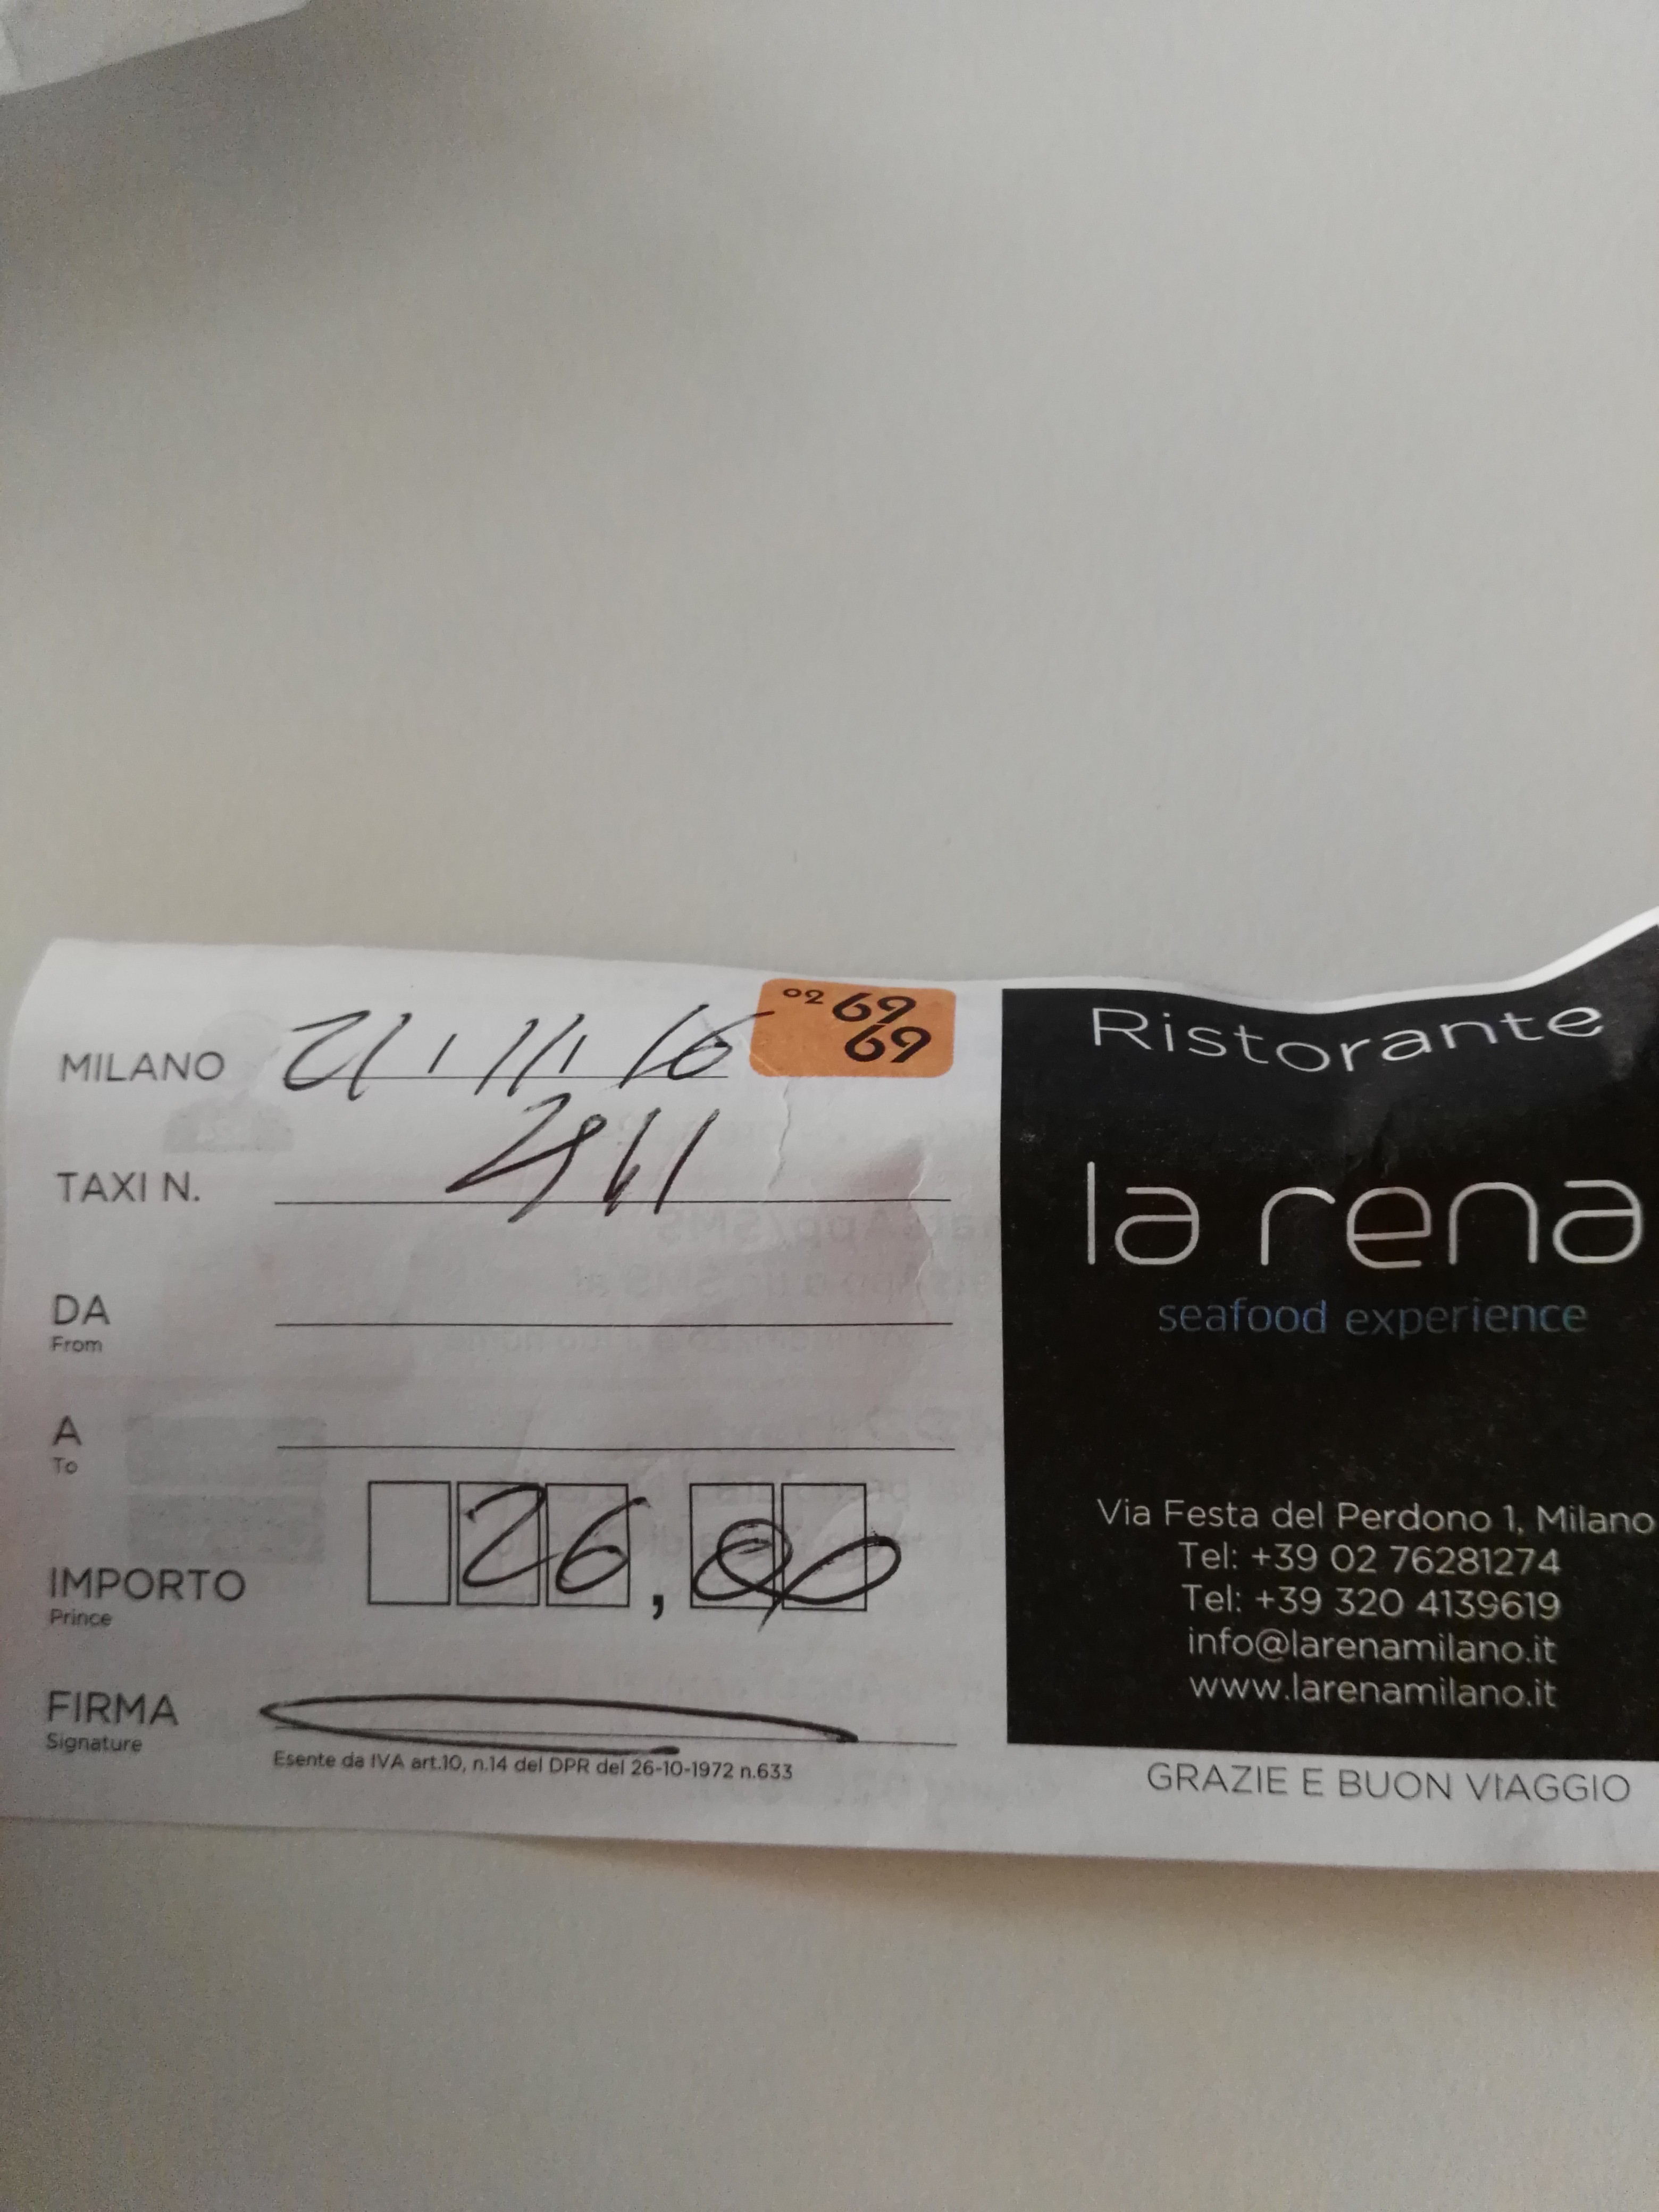 MILANO 21/11/16
02 6969
TAXI N.
DA
From
A
To
IMPORTO 26,00
Prince
FIRMA
Signature
Esente da IVA art.10, n.14 del DPR del 26-10-1972 n.633
Ristorante
la rena
seafood experience
Via Festa del Perdono 1, Milano
Tel: +39 02 76281274
Tel: +39 320 4139619
info@larenamilano.it
www.larenamilano.it
GRAZIE E BUON VIAGGIO